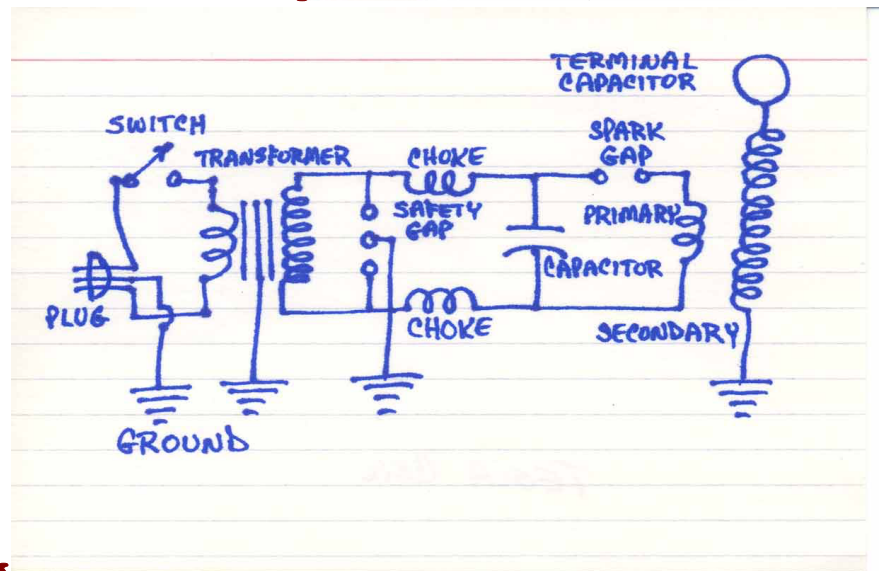 TERMINAL
CAPACITOR
SWITCH
SPARK
GAP
TRANSFORMER
CHOKE
SAFETY
GAP
PRIMARY
CAPACITOR
PLUG
CHOKE
SECONDARY
GROUND